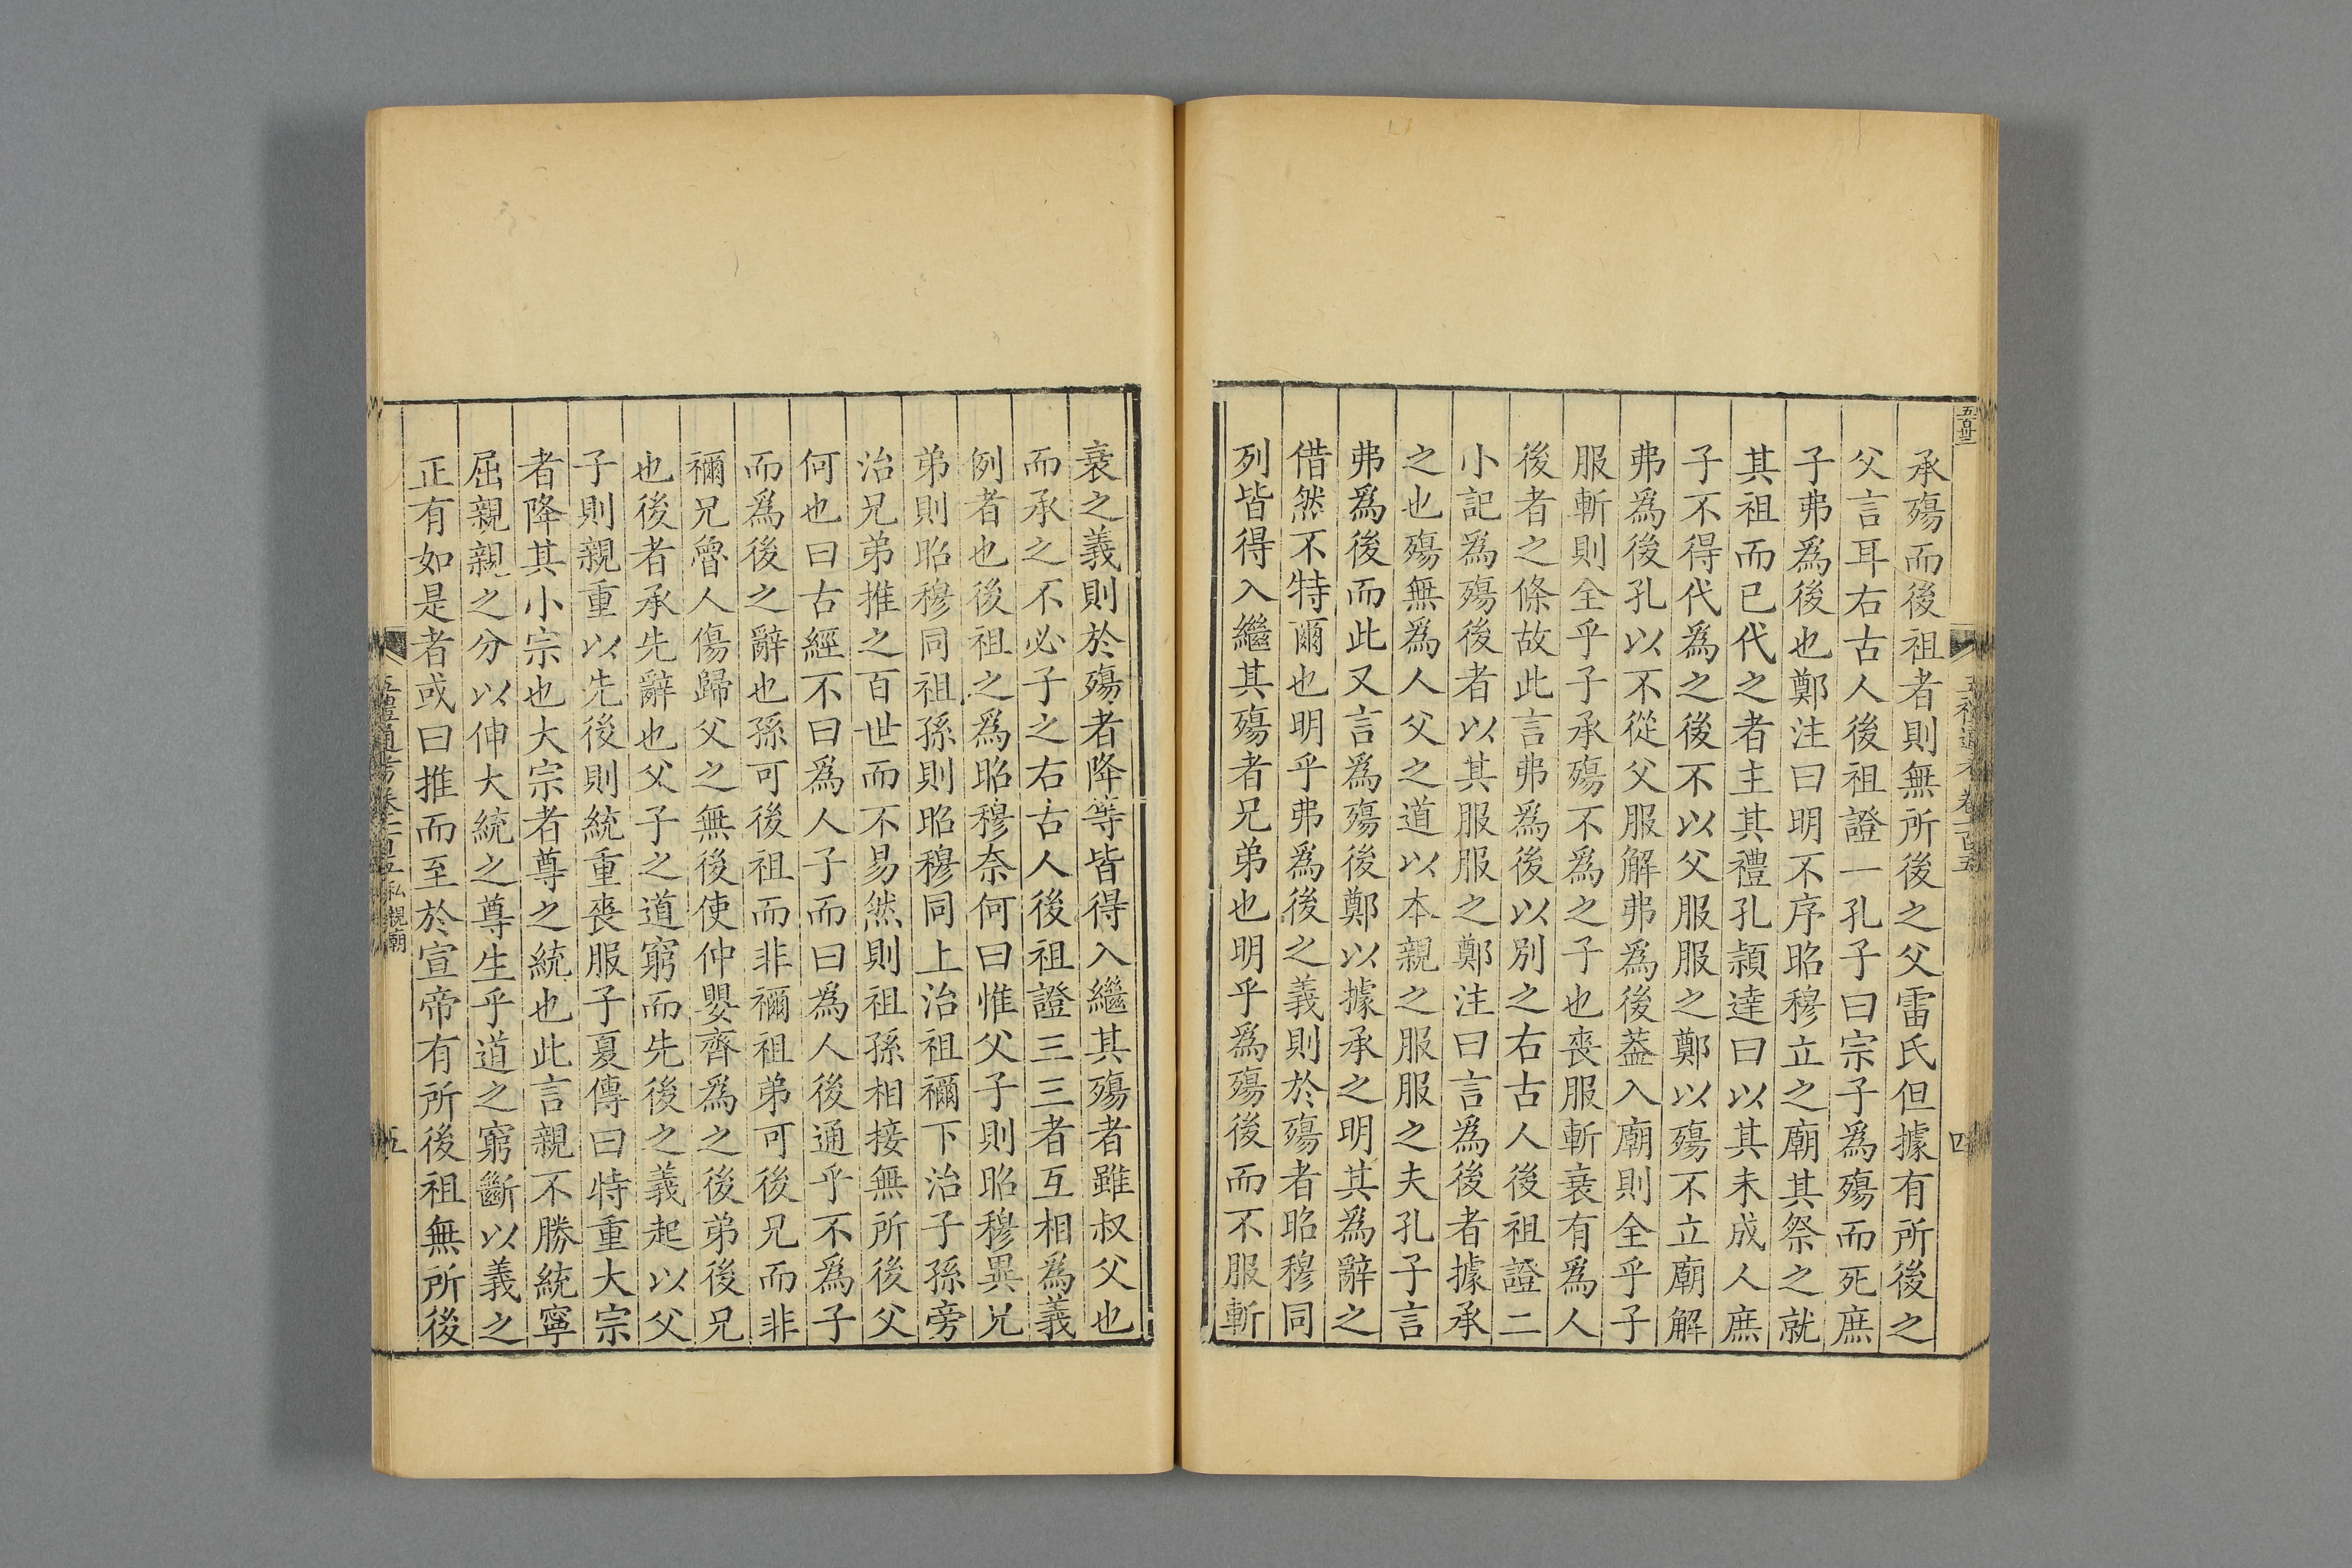 承殤而後祖者則無所後之父雷氏但據有所後之
父言耳右古人後祖證一孔子曰宗子爲殤而死庶
子弗爲後也鄭注曰明不序昭穆立之廟其祭之就
其祖而已代之者主其禮孔穎達曰以其未成人庶
子不得代爲之後不以父服服之鄭以殤不立廟解
弗爲後孔以不從父服解弗爲後葢入廟則全乎子
服斬則全乎子子承殤不爲之子也喪服斬衰有爲人
後者之條故此言弗爲後以別之右古人後祖證二
小記爲殤後者以其服服之鄭注曰言爲後者據承
之也殤無爲人父之道以本親之服服之夫孔子言
弗爲後而此又言爲殤後鄭以據承之明其爲辭之
借然不特爾也明乎弗爲後之義則於殤者昭穆同
列皆得入繼其殤者兄弟也明乎爲殤後而不服斬
衰之義則於殤者降等皆得入繼其殤者雖叔父也
而承之不必子之右古人後祖證三三者互相爲義
例者也後祖之爲昭穆奈何曰惟父子則昭穆異兄
弟則昭穆同祖孫則昭穆同上治祖禰下治子孫旁
治兄弟推之百世而不易然則祖孫相接無所後父
何也曰古經不曰爲人子而曰爲人後通乎不爲子
而爲後之辭也孫可後祖而非禰祖弟可後兄而非
禰兄魯人傷歸父之無後使仲嬰齊爲之後弟後兄
也後者承先辭也父子之道窮而先後之義起以父
子則親重以先後則統重喪服子夏傳曰特重大宗
者降其小宗也大宗者尊之統也此言親不勝統寧
屈親親之分以伸大統之尊生乎道之窮斷以義之
正有如是者或曰推而至於宣帝有所後祖無所後
五禮通考卷一百五
私親廟
五
五百卅三
四